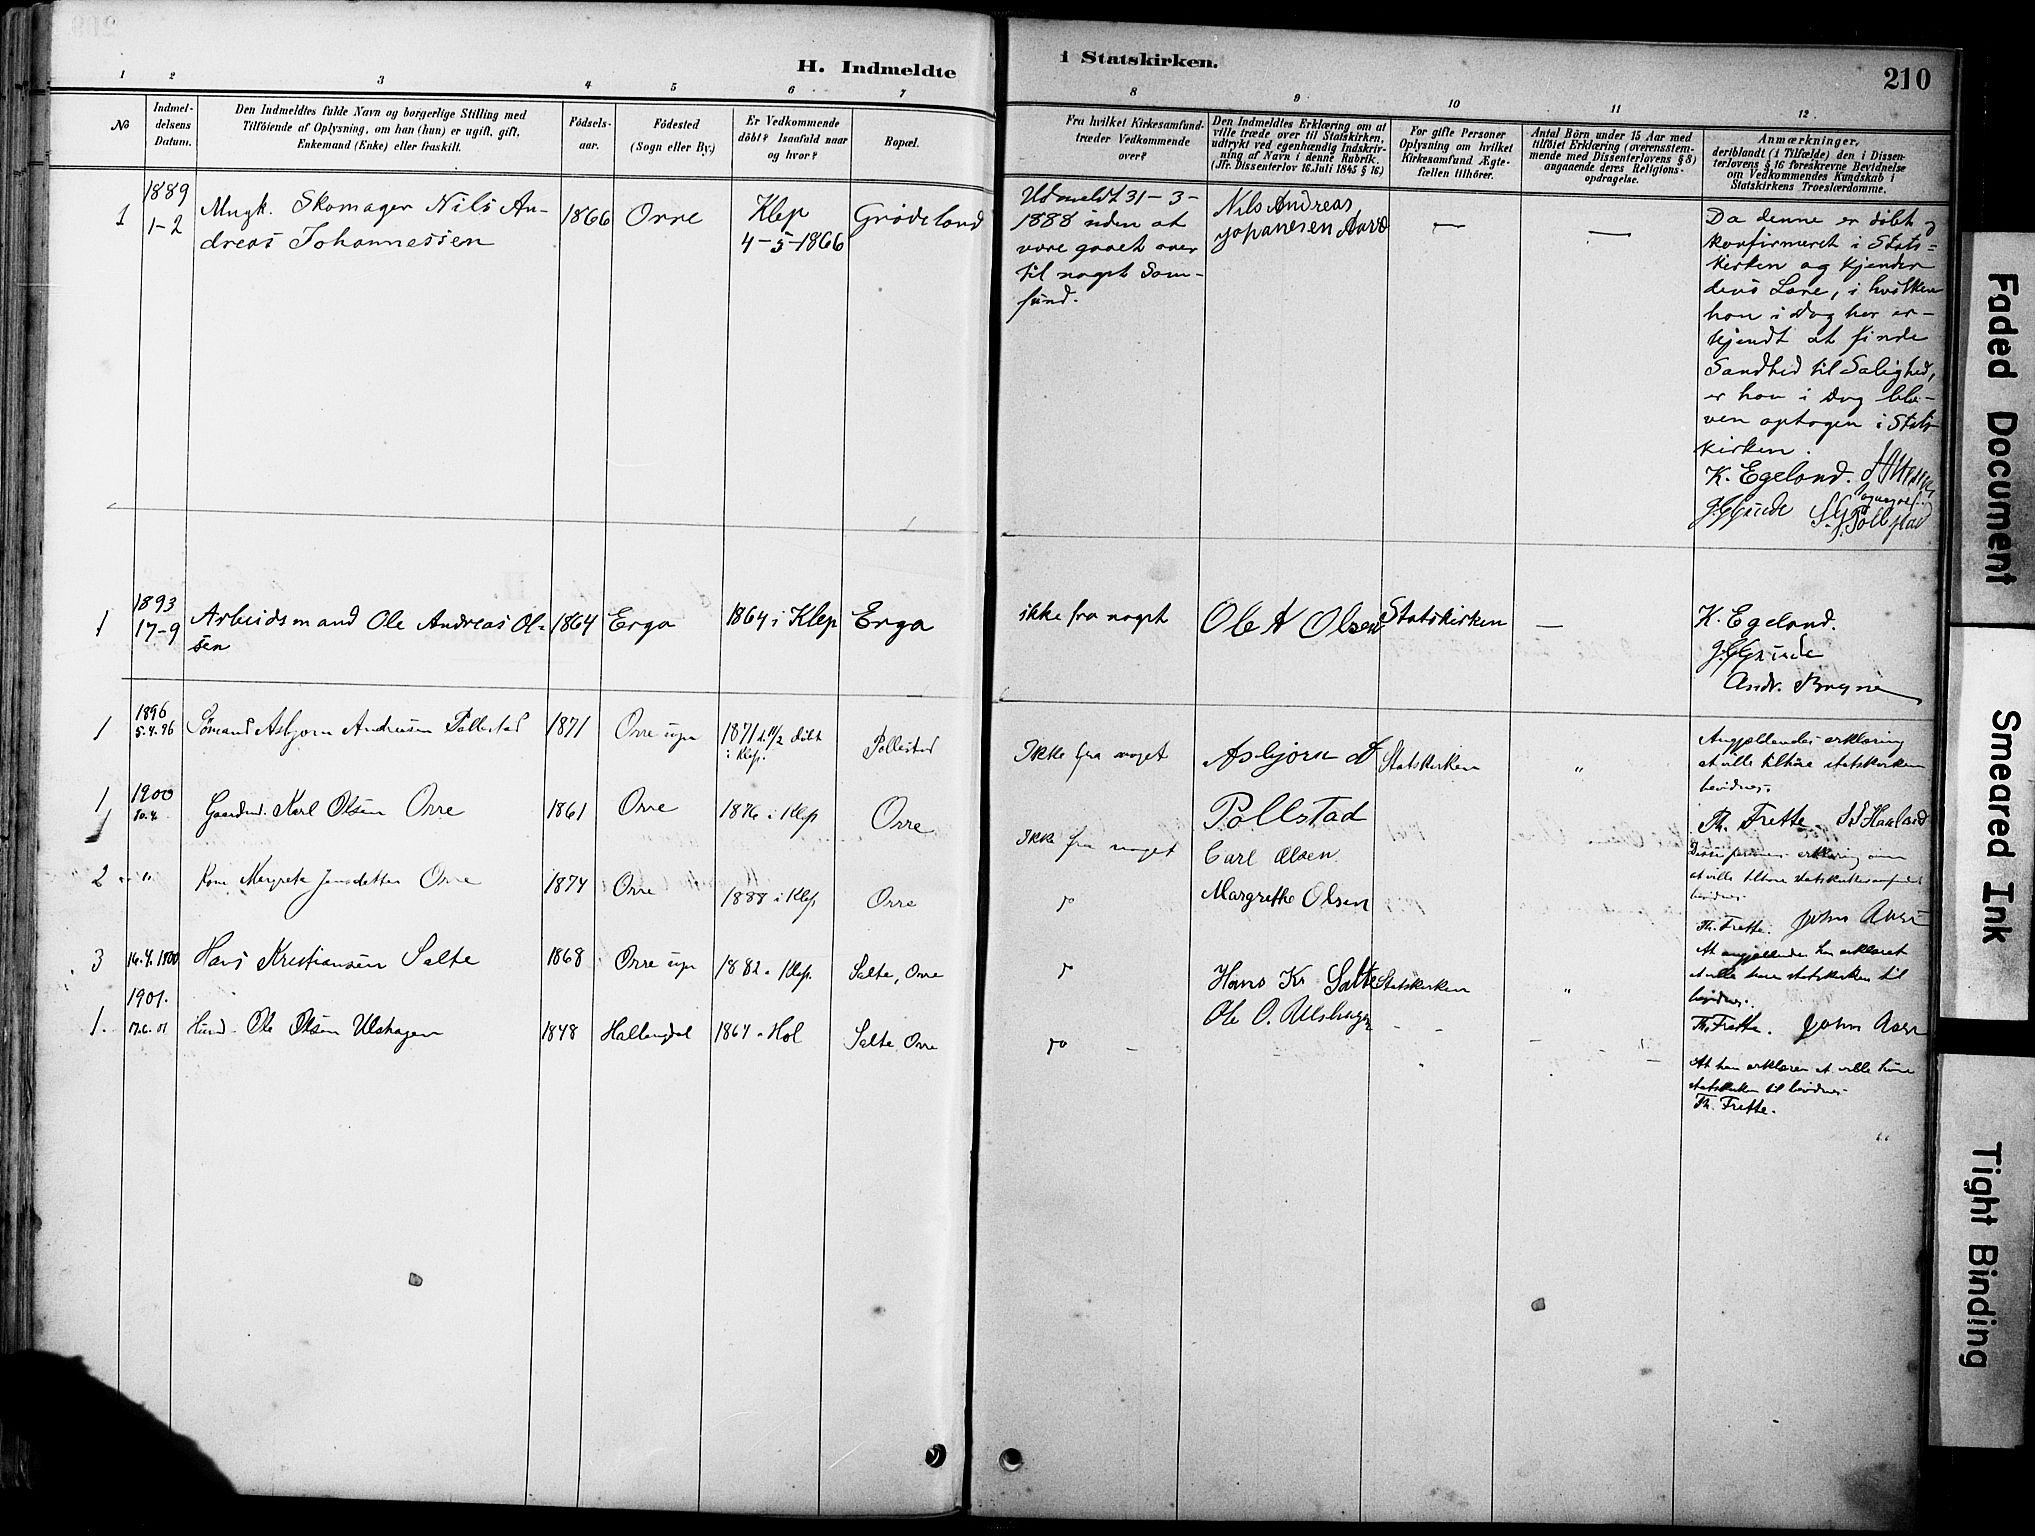 H. Indmeldte i Statskirken.
210
1 2 3 4 5 6 7 8 9 10 11 12
No
Indmel-
delsens
Datum.
Den Indmeldtes fulde Navn og borgerlige Stilling med
Tilföiende af Oplysning, om han (hun) er ugift, gift,
Enkemand (Enke) eller fraskilt.
Födsels-
aar.
Födested
(Sogn eller By.)
Er Vedkommende
döbt? Isaafald naar
og hvor?
Bopæl.
Fra hvilket Kirkesamfund
træder Vedkommende
over?
Den Indmeldtes Erklæring om at
ville træde over til Statskirken,
udtrykt ved egenhændig Indskriv-
ning af Navn i denne Rubrik.
(Jfr. Dissenterlov 16. Juli 1845 § 16.)
For gifte Personer
Oplysning om hvilket
Kirkesamfund Ægte-
fællen tilhörer.
Antal Börn under 15 Aar med
tilföiet Erklæring (overensstem-
mende med Dissenterlovens § 8)
angaaende deres Religions-
opdragelse.
Anmærkninger,
deriblandt (i Tilfælde) den i Dissen-
terlovens § 16 foreskrevne Bevidnelse
om Vedkommendes Kundskab i
Statskirkens Troeslærdomme.
1
1889
1-2
Ungk. Skomager Nils An-
dreas Johannessen
1866
Orre
Klep
4-5-1866
Grödeland
Udmeldt 31-3-
1888 uden at
være gaaet over
til noget Sam-
fund.
Nils Andreas
Johanesen
—
—
Da denne er döbt og
konfirmeret i Stats-
kirken og kjender
dens Lære, i hvilken
han i Dag har er-
kjendt at finde
Sandhed til Salighed,
er han i Dag ble-
ven optagen i Stats-
kirken.
K. Egeland.
1
1893
17-9
Arbeidsmand Ole Andreas Ol-
sen
1864
Erga
1864 i Klep
Erga
ikke fra noget
Ole A Olsen
Statskirken
—
K. Egeland.
Andr. Bryne
1
1896
5.4.96
Sömand Asbjorn Andreasen Pollestad
1871
Orre sogn
1871 döbt
i Klep.
Pollestad
Ikke fra noget
Asbjorn A
Pollstad
Statskirken
"
Angjældendes erklæring
at ville tilhöre statskirken
bevidnes.
Th. Frette.
1
1900
Gaardm. Karl Olsen Orre
1861
Orre
1876 i Klep
Orre
Ikke fra noget
Carl Olsen
2
"
Kone Margrete Jensdatter Orre
1874
Orre
1888 i Klep
Orre
do
Margrethe Olsen
Disse personers erklæring om
at ville tilhöre statskirkesamfundet
bevidnes
Th. Frette.
3
16.4.1900
Hans Kristiansen Salte
1868
Orre sogn
1882 i Klep.
Salte, Orre
do
Hans Kr. Salte
Statskirken
"
At angjældende har erklæret
at ville höre statskirken til
bevidnes.
Th. Frette.
1901.
1.
17.6.01
Ole Olsen Ulshagen
1848
Hallingdal
1864 i Hol
Salte, Orre
do
Ole O. Ulshagen
At han erklærer at ville höre
statskirken til bevidnes
Th. Frette.
Faded Document
Smeared Ink
Tight Binding